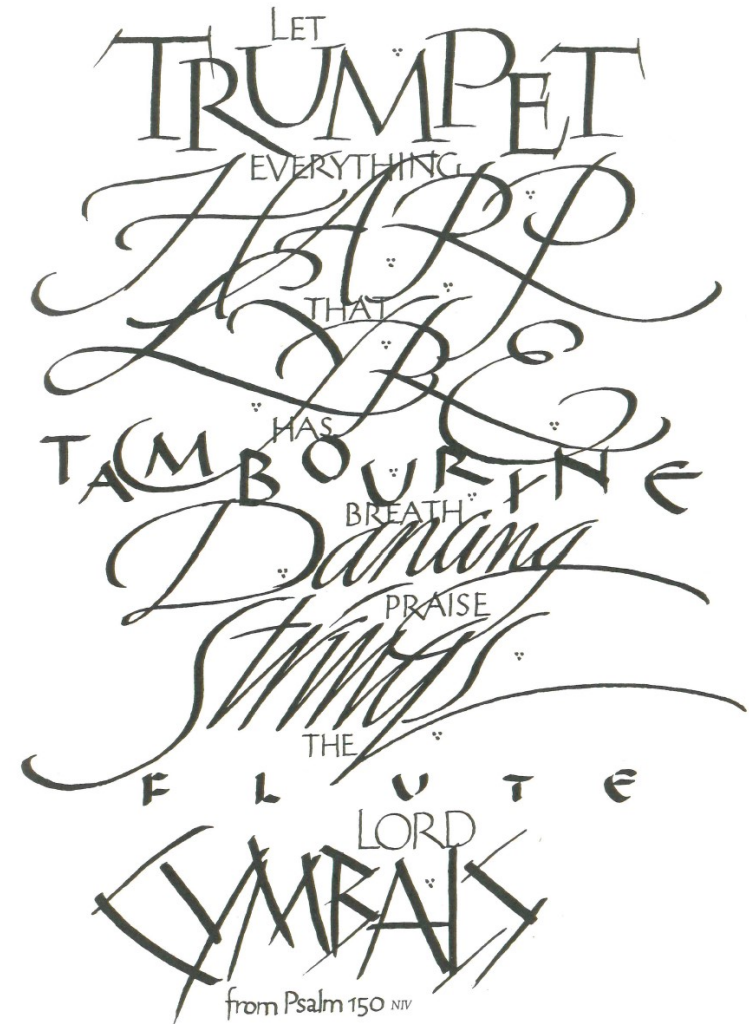 LET
TRUMPET
EVERYTHING
HARP
THAT
LYRE
HAS
TAMBOURINE
BREATH
Dancing
PRAISE
Strings
THE
FLUTE
LORD
CYMBALS
from Psalm 150 NIV